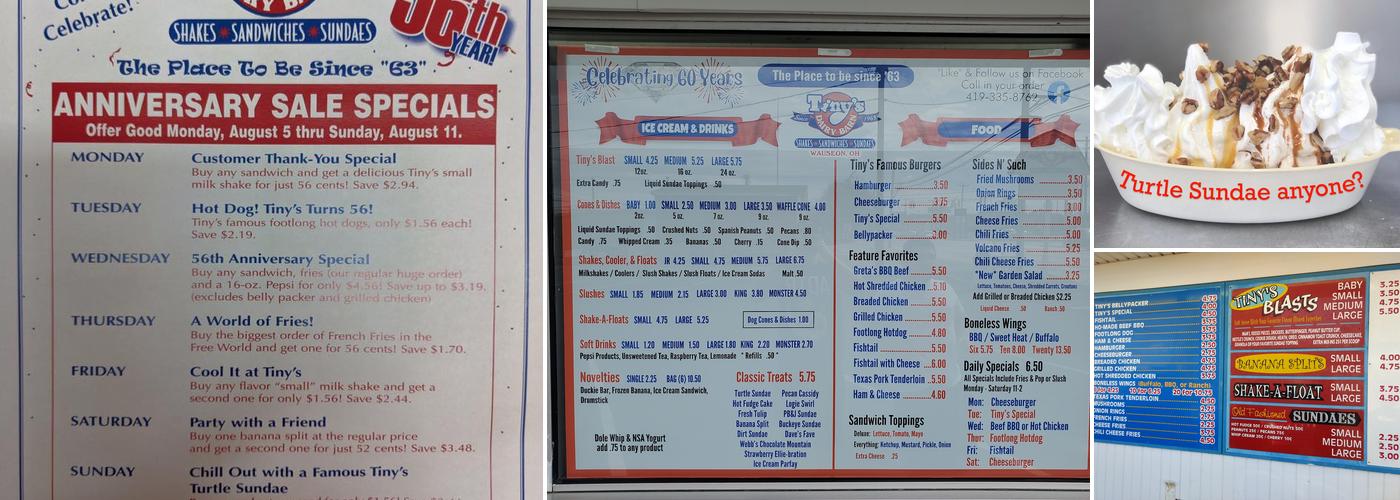 Celebrate!
56th
YEAR!
SHAKES * SANDWICHES * SUNDAES
The Place To Be Since "63"
ANNIVERSARY SALE SPECIALS
Offer Good Monday, August 5 thru Sunday, August 11.
MONDAY Customer Thank-You Special
Buy any sandwich and get a delicious Tiny's small
milk shake for just 56 cents! Save $2.94.
TUESDAY Hot Dog! Tiny's Turns 56!
Tiny's famous footlong hot dogs, only $1.56 each!
Save $2.19.
WEDNESDAY 56th Anniversary Special
Buy any sandwich, fries (our regular huge order)
and a 16-oz. Pepsi for only $4.56! Save up to $3.19.
(excludes belly packer and grilled chicken)
THURSDAY A World of Fries!
Buy the biggest order of French Fries in the
Free World and get one for 56 cents! Save $1.70.
FRIDAY Cool It at Tiny's
Buy any flavor "small" milk shake and get a
second one for only $1.56! Save $2.44.
SATURDAY Party with a Friend
Buy one banana split at the regular price
and get a second for just 52 cents! Save $3.48.
SUNDAY Chill Out with a Famous Tiny's
Turtle Sundae
Celebrating 60 Years
The Place to be since '63
"Like" & Follow us on Facebook
Call in your order
419-335-8762
Tiny's
DAIRY BARN
SHAKES * SANDWICHES * SUNDAES
WAUSEON, OH
ICE CREAM & DRINKS
Tiny's Blast SMALL 4.25 MEDIUM 5.25 LARGE 5.75
12oz. 16 oz. 24 oz.
Extra Candy .75 Liquid Sundae Toppings .50
Cones & Dishes BABY 1.00 SMALL 2.50 MEDIUM 3.00 LARGE 3.50 WAFFLE CONE 4.00
2oz. 5 oz. 7 oz. 9 oz. 9 oz.
Liquid Sundae Toppings .50 Crushed Nuts .50 Spanish Peanuts .50 Pecans .80
Candy .75 Whipped Cream .35 Bananas .50 Cherry .15 Cone Dip .50
Shakes, Cooler, & Floats JR 4.25 SMALL 4.75 MEDIUM 5.75 LARGE 6.75
Milkshakes / Coolers / Slush Shakes / Slush Floats / Ice Cream Sodas Malt .50
Slushes SMALL 1.85 MEDIUM 2.15 LARGE 3.00 KING 3.80 MONSTER 4.50
Shake-A-Floats SMALL 4.75 LARGE 5.25
Dog Cones & Dishes 1.00
Soft Drinks SMALL 1.20 MEDIUM 1.50 LARGE 1.80 KING 2.20 MONSTER 2.70
Pepsi Products, Unsweetened Tea, Raspberry Tea, Lemonade * Refills .50 *
Novelties SINGLE 2.25 BAG (6) 10.50
Duckie Bar, Frozen Banana, Ice Cream Sandwich,
Drumstick
Dole Whip & NSA Yogurt
add .75 to any product
Classic Treats 5.75
Turtle Sundae Pecan Cassidy
Hot Fudge Cake Logie Swirl
Fresh Tulip PB&J Sundae
Banana Split Buckeye Sundae
Dirt Sundae Dave's Fave
Webb's Chocolate Mountain
Strawberry Ellie-bration
Ice Cream Parfay
FOOD
Tiny's Famous Burgers
Hamburger 3.50
Cheeseburger 3.75
Tiny's Special 5.50
Bellypacker
Feature Favorites
Greta's BBQ Beef 5.50
Hot Shredded Chicken 5.10
Breaded Chicken 5.50
Grilled Chicken 5.50
Footlong Hotdog 4.80
Fishtail 5.50
Fishtail with Cheese 6.00
Texas Pork Tenderloin 5.50
Ham & Cheese 4.60
Sandwich Toppings
Deluxe: Lettuce, Tomato, Mayo
Everything: Ketchup, Mustard, Pickle, Onion
Extra Cheese .25
Sides N' Such
Fried Mushrooms 3.50
Onion Rings 3.50
French Fries 3.00
Cheese Fries 5.00
Chili Fries 5.00
Volcano Fries 5.25
Chili Cheese Fries 5.50
*New* Garden Salad 3.25
Lettuce, Tomatoes, Cheese, Shredded Carrots, Croutons
Add Grilled or Breaded Chicken $2.25
Liquid Cheese .50 Ranch .50
Boneless Wings
BBQ / Sweet Heat / Buffalo
Six 5.75 Ten 8.00 Twenty 13.50
Daily Specials 6.50
All Specials Include Fries & Pop or Slush
Monday - Saturday 11-2
Mon: Cheeseburger
Tue: Tiny's Special
Wed: Beef BBQ or Hot Chicken
Thur: Footlong Hotdog
Fri: Fishtail
Sat: Cheeseburger
Turtle Sundae anyone?
TINY'S BELLYPACKER 4.75
TINY'S SPECIAL 4.00
FISHTAIL
HO-MADE BEEF BBQ
FOOTLONG DOG
HAM & CHEESE
HAMBURGER
CHEESEBURGER
BREADED CHICKEN
GRILLED CHICKEN
HOT SHREDDED CHICKEN
BONELESS WINGS (Buffalo, BBQ, or Ranch)
TEXAS PORK TENDERLOIN
MUSHROOMS
ONION RINGS
FRENCH FRIES
CHEESE FRIES
CHILI CHEESE FRIES
TINY'S
BLASTS
BABY 3.25
SMALL 3.50
MEDIUM 4.75
LARGE 5.50
BANANA SPLITS
SMALL 4.00
LARGE 4.75
SHAKE-A-FLOAT
SMALL 3.75
LARGE 4.50
Old Fashioned SUNDAES
HOT FUDGE 50¢ / CRUSHED NUTS 50¢
PEANUTS 25¢ / PECANS 75¢
WHIP CREAM 20¢ / CHERRY 10¢
SMALL 2.25
MEDIUM 2.50
LARGE 3.00